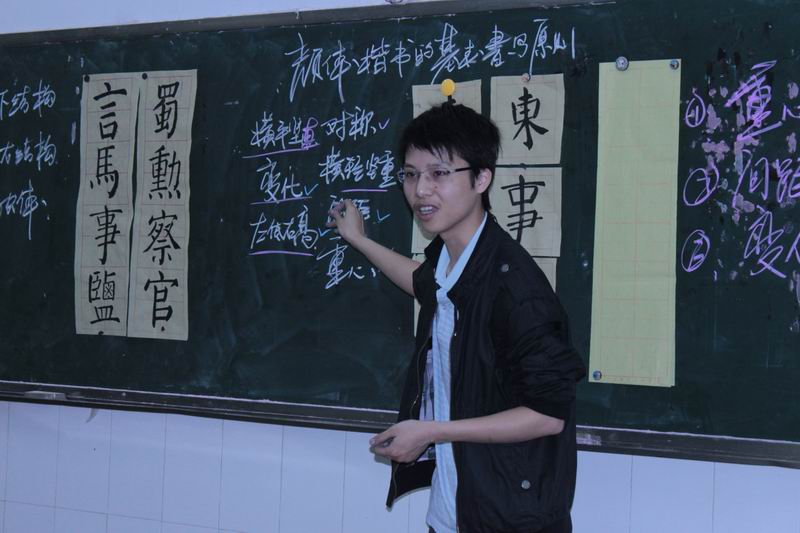 颜体楷书的基本書写原则
下结构
右结构
蜀勲察官
言馬事鹽
横平竖直 对称、
变化、横轻竖重
左低右高、
重心、
東
事
① 重心
② 间距
③ 变